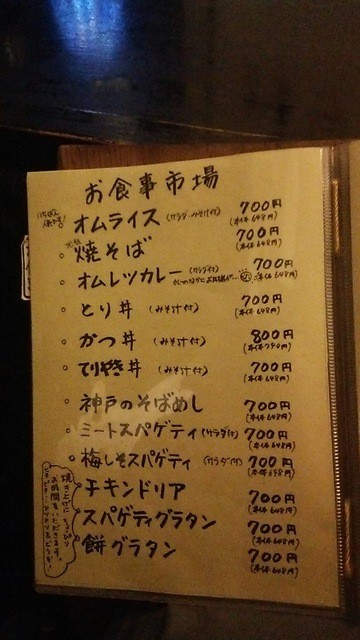 お食事市場
オムライス (サラダ、みそ汁付) 700円
(本体648円)
焼そば 700円
(本体648円)
オムレツカレー (サラダ付) 700円
(本体648円)
とり丼 (みそ汁付) 700円
(本体648円)
かつ丼 (みそ汁付) 800円
(本体740円)
てりやき丼 (みそ汁付) 700円
(本体648円)
神戸のそばめし 700円
(本体648円)
ミートスパゲティ (サラダ付) 700円
(本体648円)
梅しそスパゲティ (サラダ付) 700円
(本体648円)
チキンドリア 700円
(本体648円)
スパゲティグラタン 700円
(本体648円)
餅グラタン 700円
(本体648円)
焼き上げにちょっぴり
お時間をいただきます。